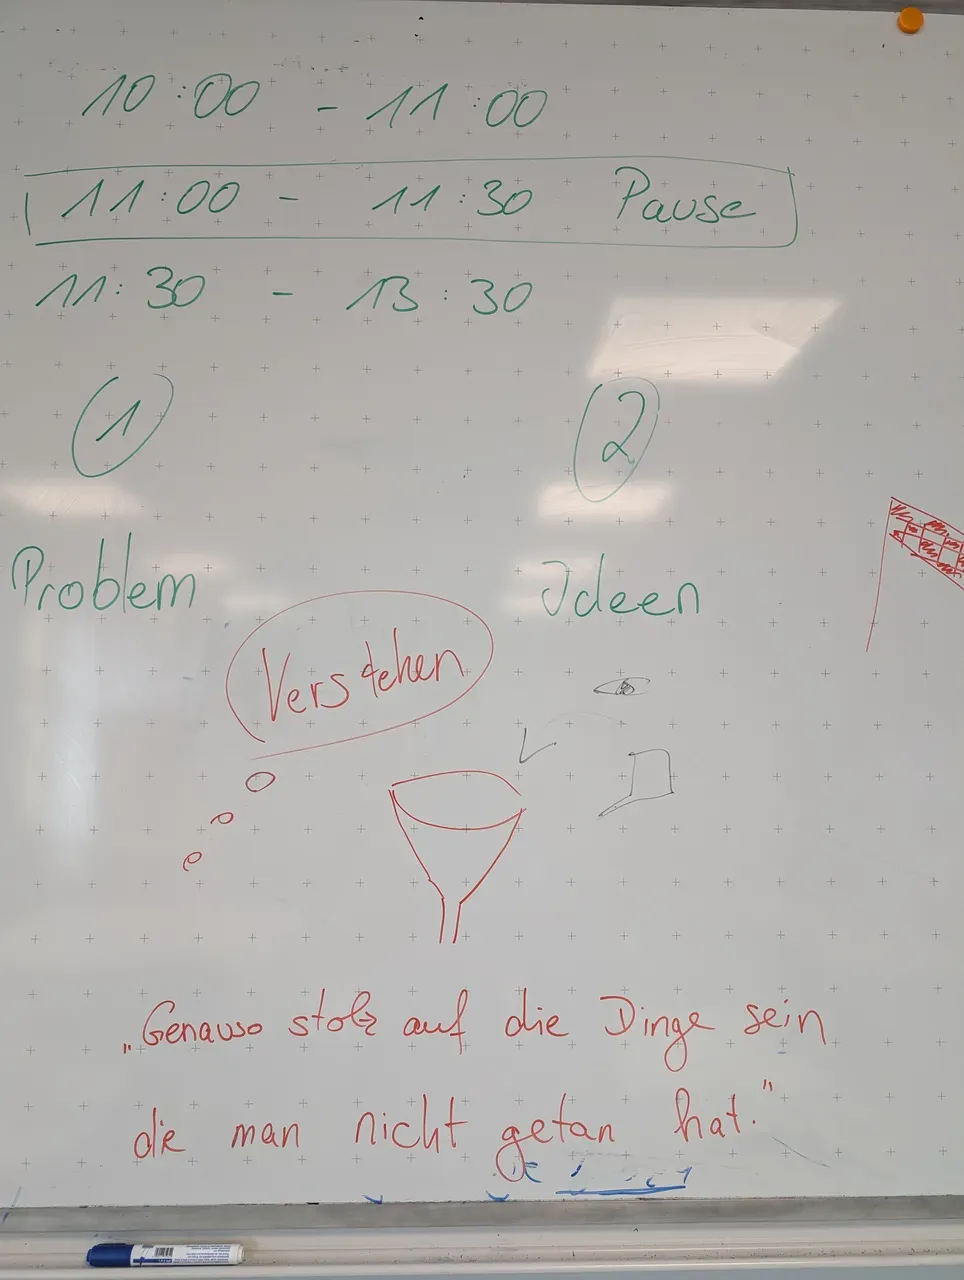 10:00 - 11:00
11:00 - 11:30 Pause
11:30 - 13:30
1 2
Problem Ideen
Verstehen
„Genauso stolz auf die Dinge sein
die man nicht getan hat."